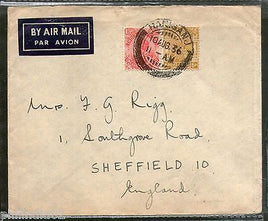 BY AIR MAIL
PAR AVION
10 AUG 36
11 - AM
Mrs. F. G. Rigg.
1, Southgrove Road,
SHEFFIELD 10.
England.